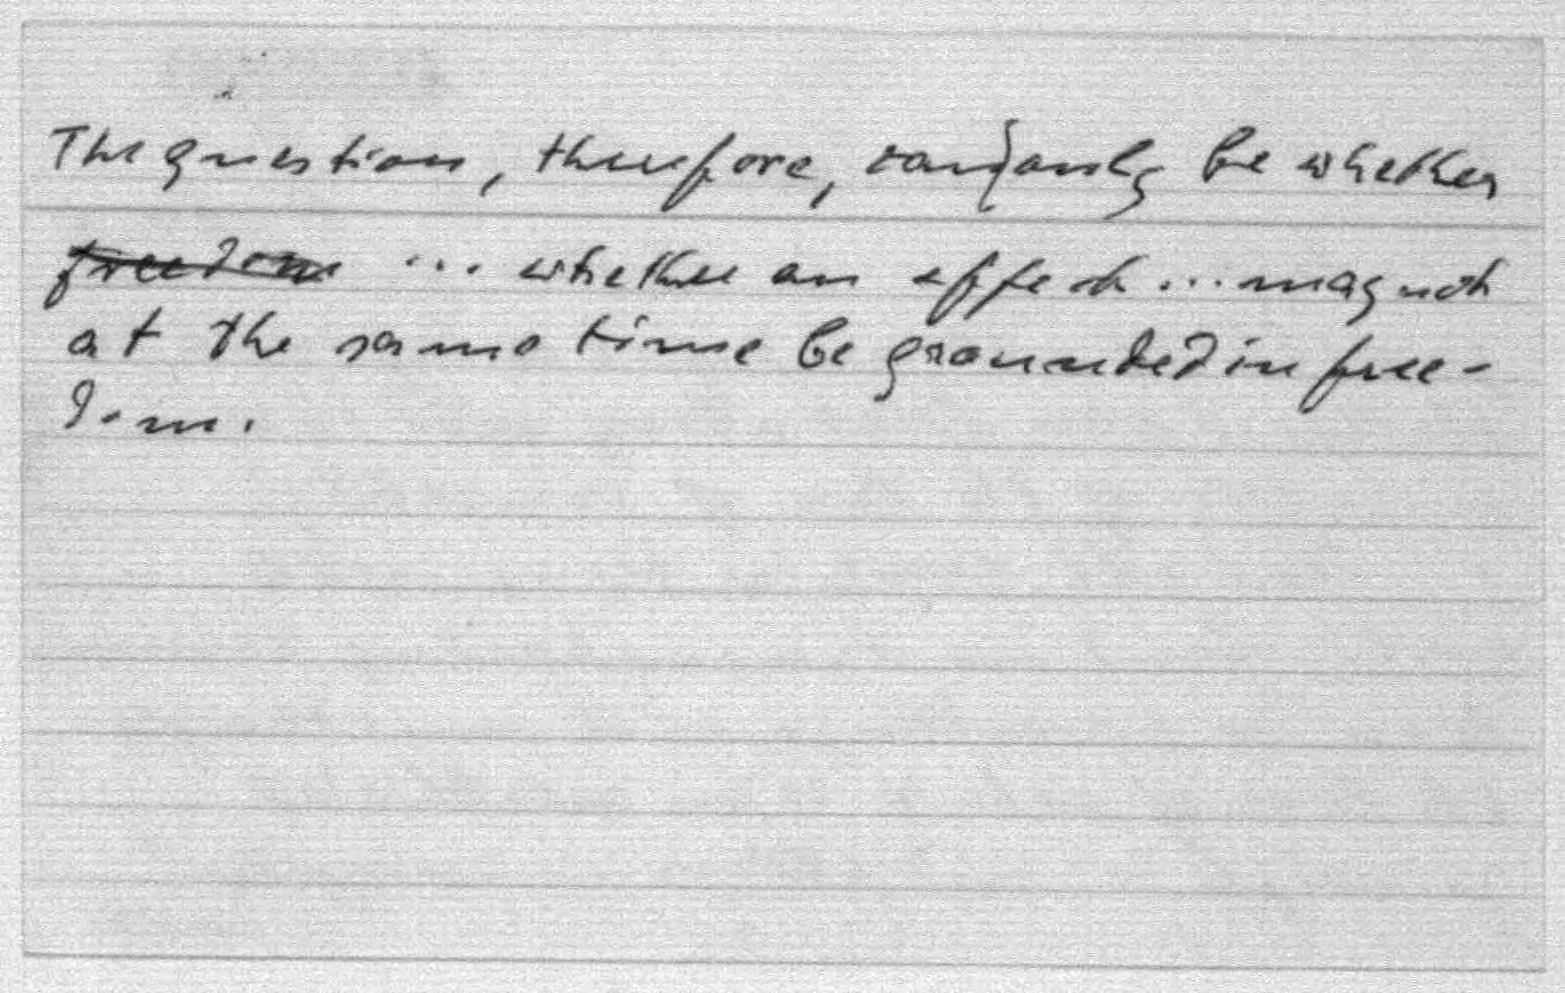 The question, therefore, can only be whether
freedom ... whether an effect ... may not
at the same time be grounded in free-
dom.